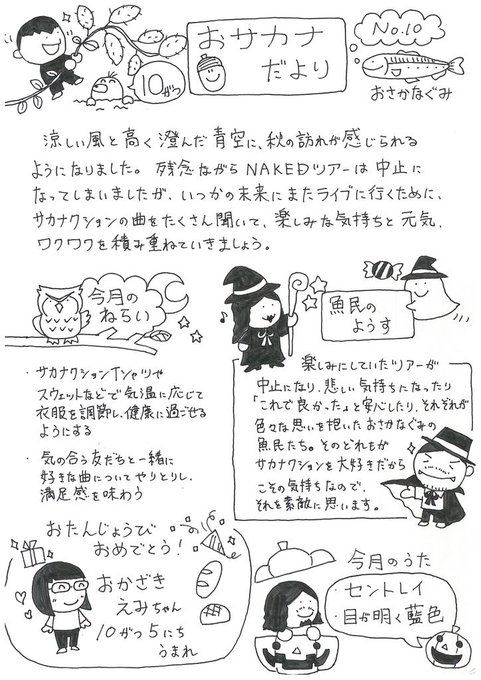 おサカナ
だより
10がつ
No.10
おさかなぐみ
涼しい風と高く澄んだ青空に、秋の訪れが感じられる
ようになりました。残念ながらNAKEDツアーは中止に
なってしまいましたが、いつかの未来にまたライブに行くために、
サカナクションの曲をたくさん聞いて、楽しみな気持ちと元気、
ワクワクを積み重ねていきましょう。
今月の
ねらい
・サカナクションTシャツや
スウェットなどで気温に応じて
衣服を調節し、健康に過ごせる
ようにする
・気の合う友だちと一緒に
好きな曲についてやりとりし、
満足感を味わう
魚民の
ようす
楽しみにしていたツアーが
中止になり、悲しい気持ちになったり
「これで良かった」と安心したり、それぞれが
色々な思いを抱いたおさかなぐみの
魚民たち。そのどれもが
サカナクションを大好きだから
こその気持ちなので、
それを素敵に思います。
おたんじょうび
おめでとう!
おかざき
えみちゃん
10がつ5にち
うまれ
今月のうた
・セントレイ
・目が明く藍色